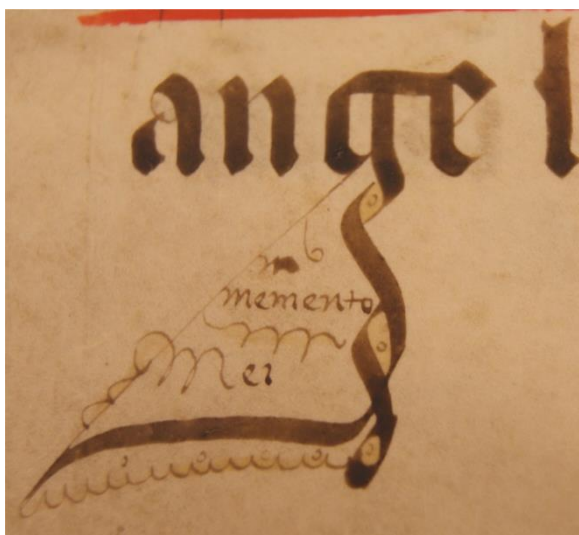 angel
memento
Mei